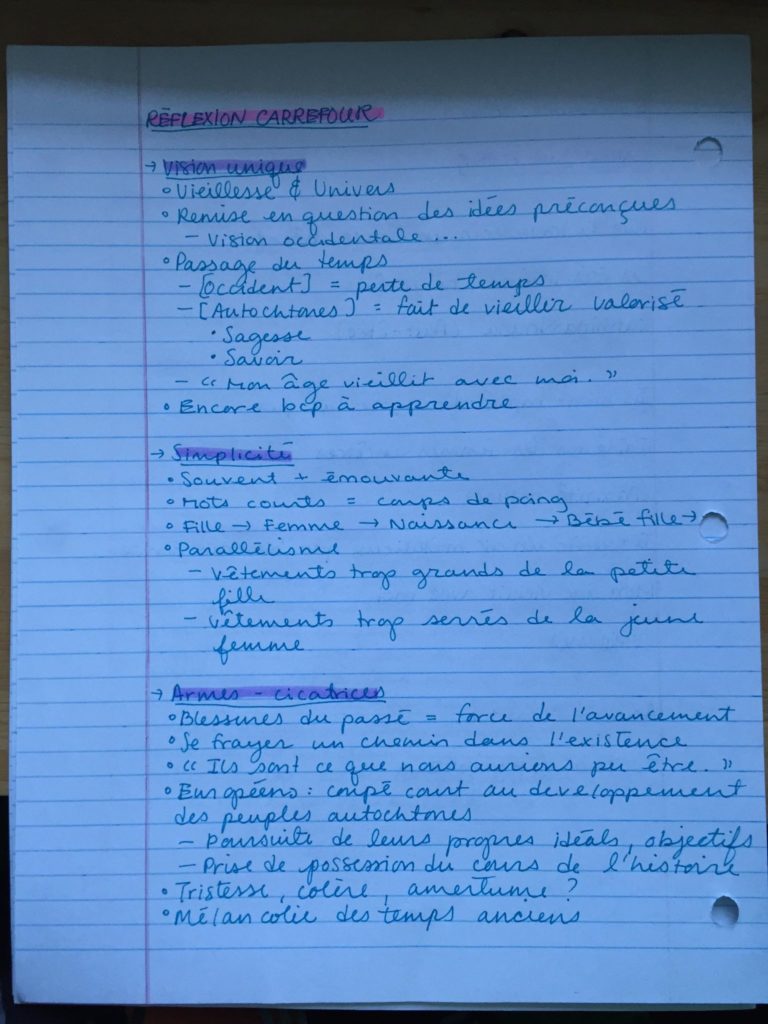 RÉFLEXION CARREFOUR
→ Vision unique
° Vieillesse & Univers
° Remise en question des idées préconçues
– Vision occidentale ...
° Passage du temps
– [Occident] = perte de temps
– [Autochtones] = fait de vieillir valorisé
• Sagesse
• Savoir
– « Mon âge vieillit avec moi. »
° Encore bcp à apprendre
→ Simplicité
° Souvent + émouvante
° Mots courts = coups de poing
° Fille → Femme → Naissance → Bébé fille →
° Parallélisme
– Vêtements trop grands de la petite
fille
– Vêtements trop serrés de la jeune
femme
→ Armes - cicatrices
° Blessures du passé = force de l'avancement
° Se frayer un chemin dans l'existence
° « Ils sont ce que nous aurions pu être. »
° Européens : coupé court au developpement
des peuples autochtones
– Poursuite de leurs propres idéals, objectifs
– Prise de possession du cours de l'histoire
° Tristesse, colère, amertume ?
° Mélancolie des temps anciens